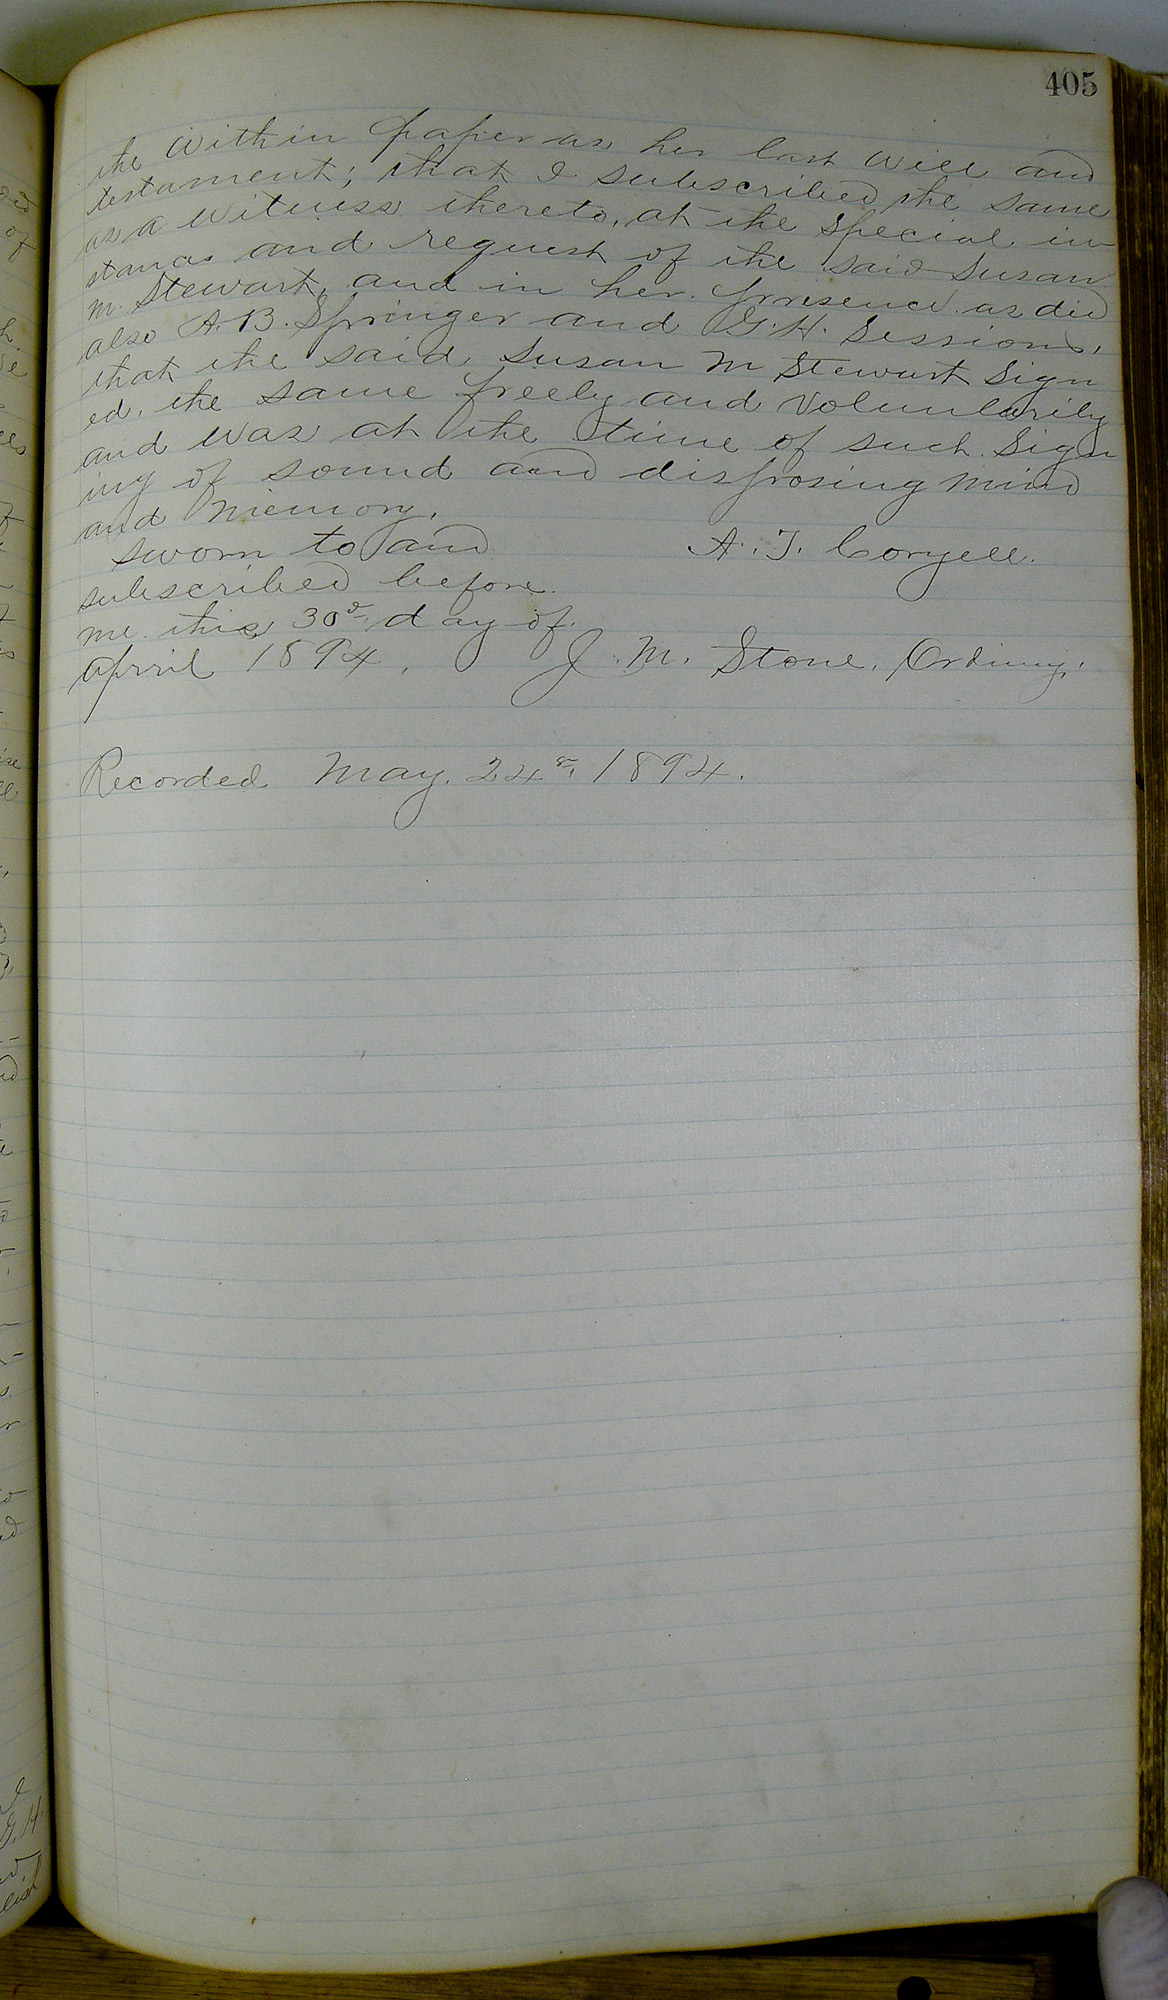 405
the within paper as her last will and
testament; that I subscribed the same
as a witness thereto, at the special in
stance and request of the said Susan
M. Stewart, and in her presence as did
also A. B. Springer and G. H. Sessions,
that the said Susan M Stewart sign
ed, the same freely and voluntarily
and was at the time of such sign
ing of sound and disposing mind
and memory.
sworn to and A. T. Coryell.
subscribed before
me this 30th day of
April 1894. J. M. Stone, Ordinary.
Recorded May, 24th, 1894.